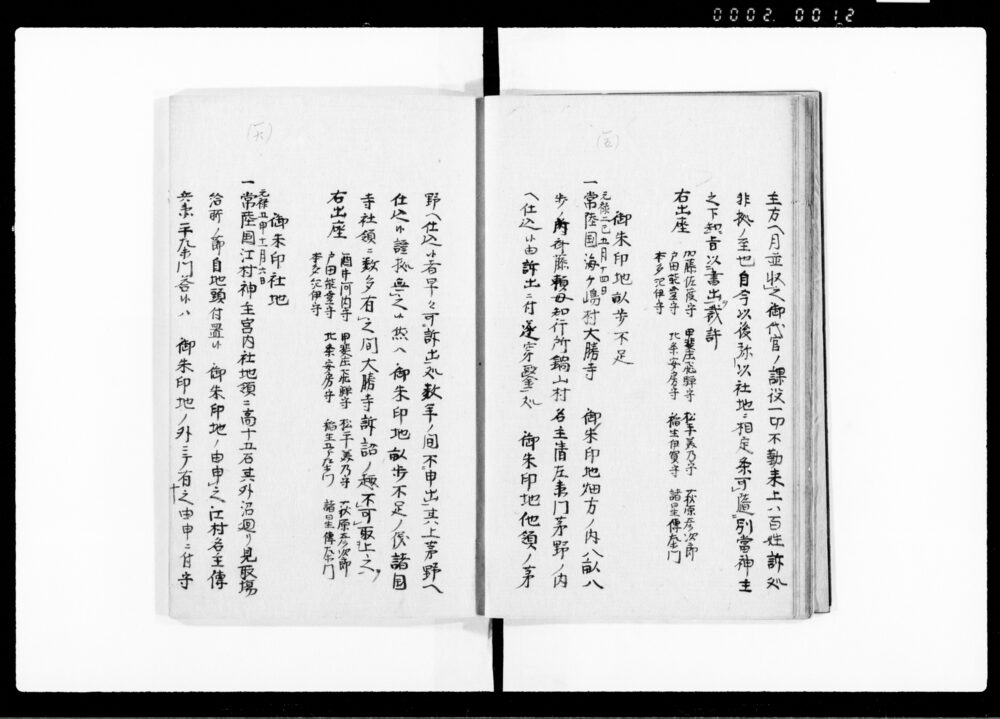 0002 0012
(五)
主方ヘ月並収之御代官ノ課役一切不勤来上ハ百姓訴処
非拠ノ至也自今以後弥以社地ニ相定条可随別當神主
之下知旨以書出裁許
右出座 加藤佐渡守 甲斐庄飛騨守 松平美乃守 萩原彦次郎
戸田能登守 北条安房守 稲生伊賀守 諸星傳左衛門
本多紀伊守
御朱印地畝歩不足
元禄二巳五月十四日
一常陸国海ケ嶋村大勝寺 御朱印地畑方ノ内八畝八
歩ノ所斉藤頼母知行所鍋山村名主清左衛門茅野ノ内
ヘ仕込候由訴出ニ付遂穿鑿処 御朱印地他領ノ茅
(六)
野ヘ仕込候者早々可訴出処数年ノ間不申出其上茅野ヘ
仕込候證拠無之候然ヘ 御朱印地畝歩不足ノ儀諸国
寺社領ニ数多有之間大勝寺訴詔ノ趣不可取上之
右出座 酒井河内守 甲斐庄飛騨守 松平美乃守 萩原彦次郎
戸田能登守 北条安房守 稲生五郎左衛門 諸星傳左衛門
本多紀伊守
御朱印社地
元禄五申十一月六日
一常陸国江村神主宮内社地領ニ高十五石其外沼廻り見取場
給所ノ節自地頭付置候 御朱印地ノ由申之江村名主傳
兵衛平左衛門答候ハ 御朱印地ノ外ニテ有之由申ニ付守